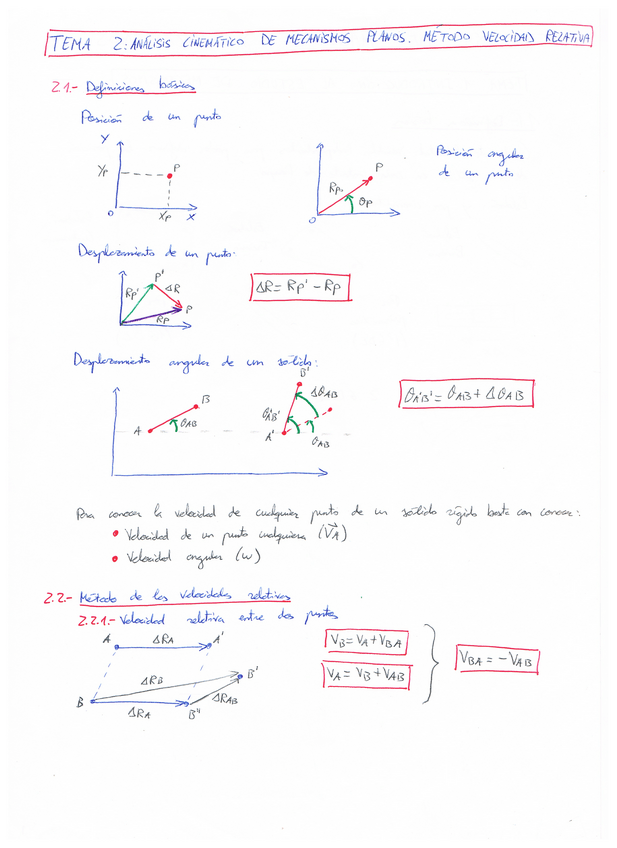 TEMA 2: ANÁLISIS CINEMÁTICO DE MECANISMOS PLANOS. MÉTODO VELOCIDAD RELATIVA
2.1.- Definiciones básicas
Posición de un punto
Y
YP
P
O
XP
X
P
RP
θP
O
Posición angular
de un punto
Desplazamiento de un punto:
P'
RP'
ΔR
P
RP
ΔR = RP' - RP
Desplazamiento angular de un sólido:
A
B
θAB
B'
ΔθAB
θA'B'
A'
θAB
θA'B' = θAB + ΔθAB
Para conocer la velocidad de cualquier punto de un sólido rígido basta con conocer:
• Velocidad de un punto cualquiera (VA)
• Velocidad angular (w)
2.2.- Método de las Velocidades relativas
2.2.1.- Velocidad relativa entre dos puntos
A
ΔRA
A'
ΔRB
B'
B
ΔRA
B"
ΔRAB
VB = VA + VBA
VA = VB + VAB
VBA = - VAB